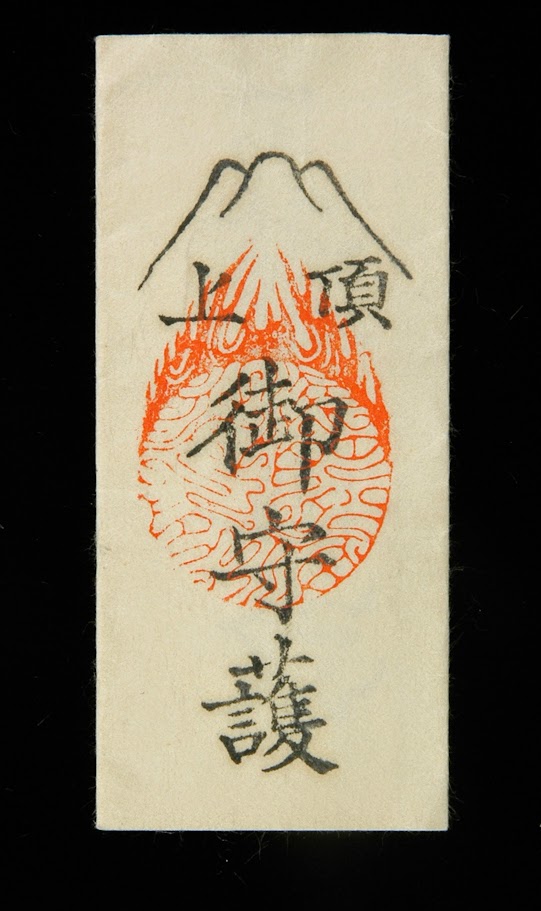 頂上
御守護